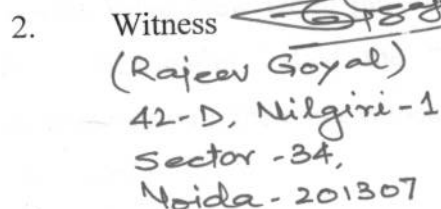 2. Witness
(Rajeev Goyal)
42-D, Nilgiri-1
Sector -34,
Noida - 201307